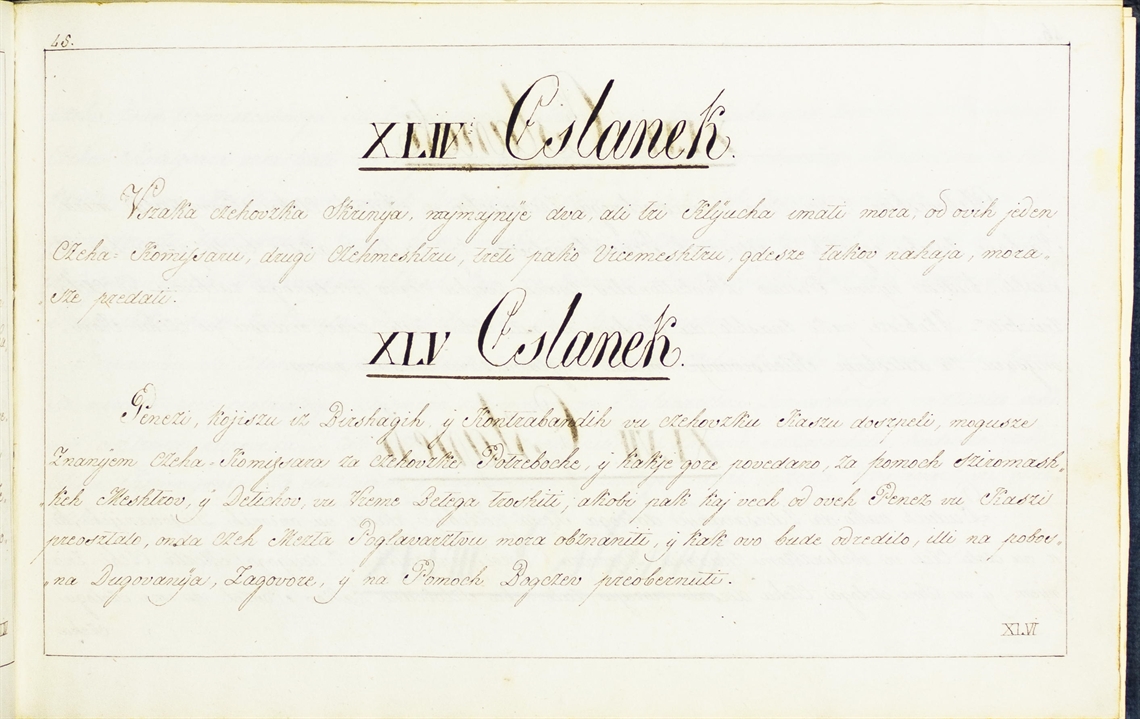 48.
XLIV Cslanek.
Vszaka czehovzka Skrinÿa, naÿmaÿnÿe dva, ali tri Klÿucha imati mora, od ovih jeden
Czeha-Komiſsaru, drugi Czehmeshtru, treti pako Vicemeshtru, gdesze takov nahaja, mora-
sze predati.
XLV Cslanek.
Penezi, kojiszu iz Birshagih ÿ Kontrabandih vu czehovzku Kaszu doszpeli, mogusze
Znanÿem Czeha-Komiſsara za czehovzke Potreboche, ÿ kakje gore povedano, za pomoch sziromash-
keh Meshtrov, ÿ Detichov, vu Vreme Betega troshiti, akobi pak kaj vech od oveh Penez vu Kaszi
preosztalo, onda Czeh Mezta Poglavarztvu mora obznaniti, ÿ kak ovo bude odredilo, illi na pobos-
na Dugovanÿa, Zagovore, ÿ na Pomoch Bogczev preobernuti.
XLVI